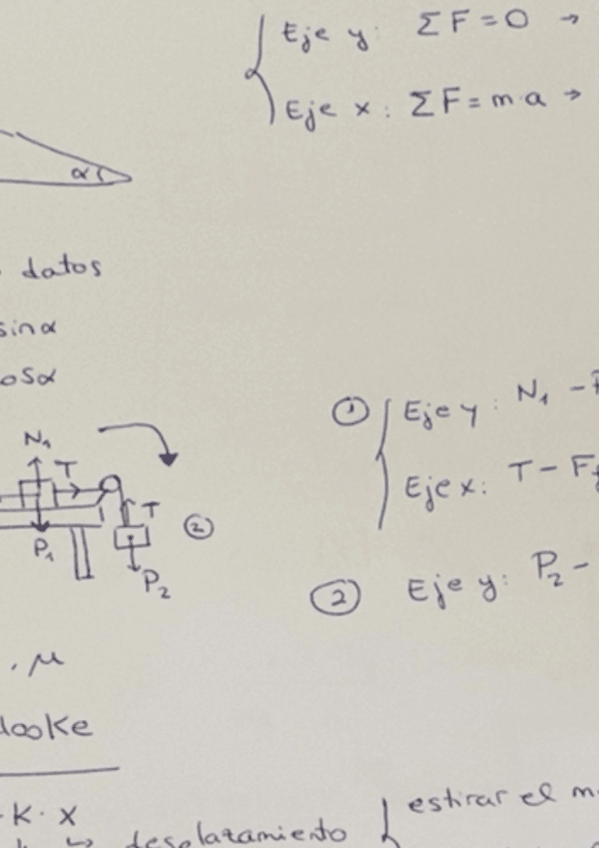 Eje y: ΣF = 0 →
Eje x: ΣF = m·a →
α
datos
sinα
cosα
① Eje y: N₁ -
Eje x: T - F
N₁
T
T
②
P₁
P₂
② Eje y: P₂ -
, μ
Hooke
K · x
↳ desplazamiento
estirar el m